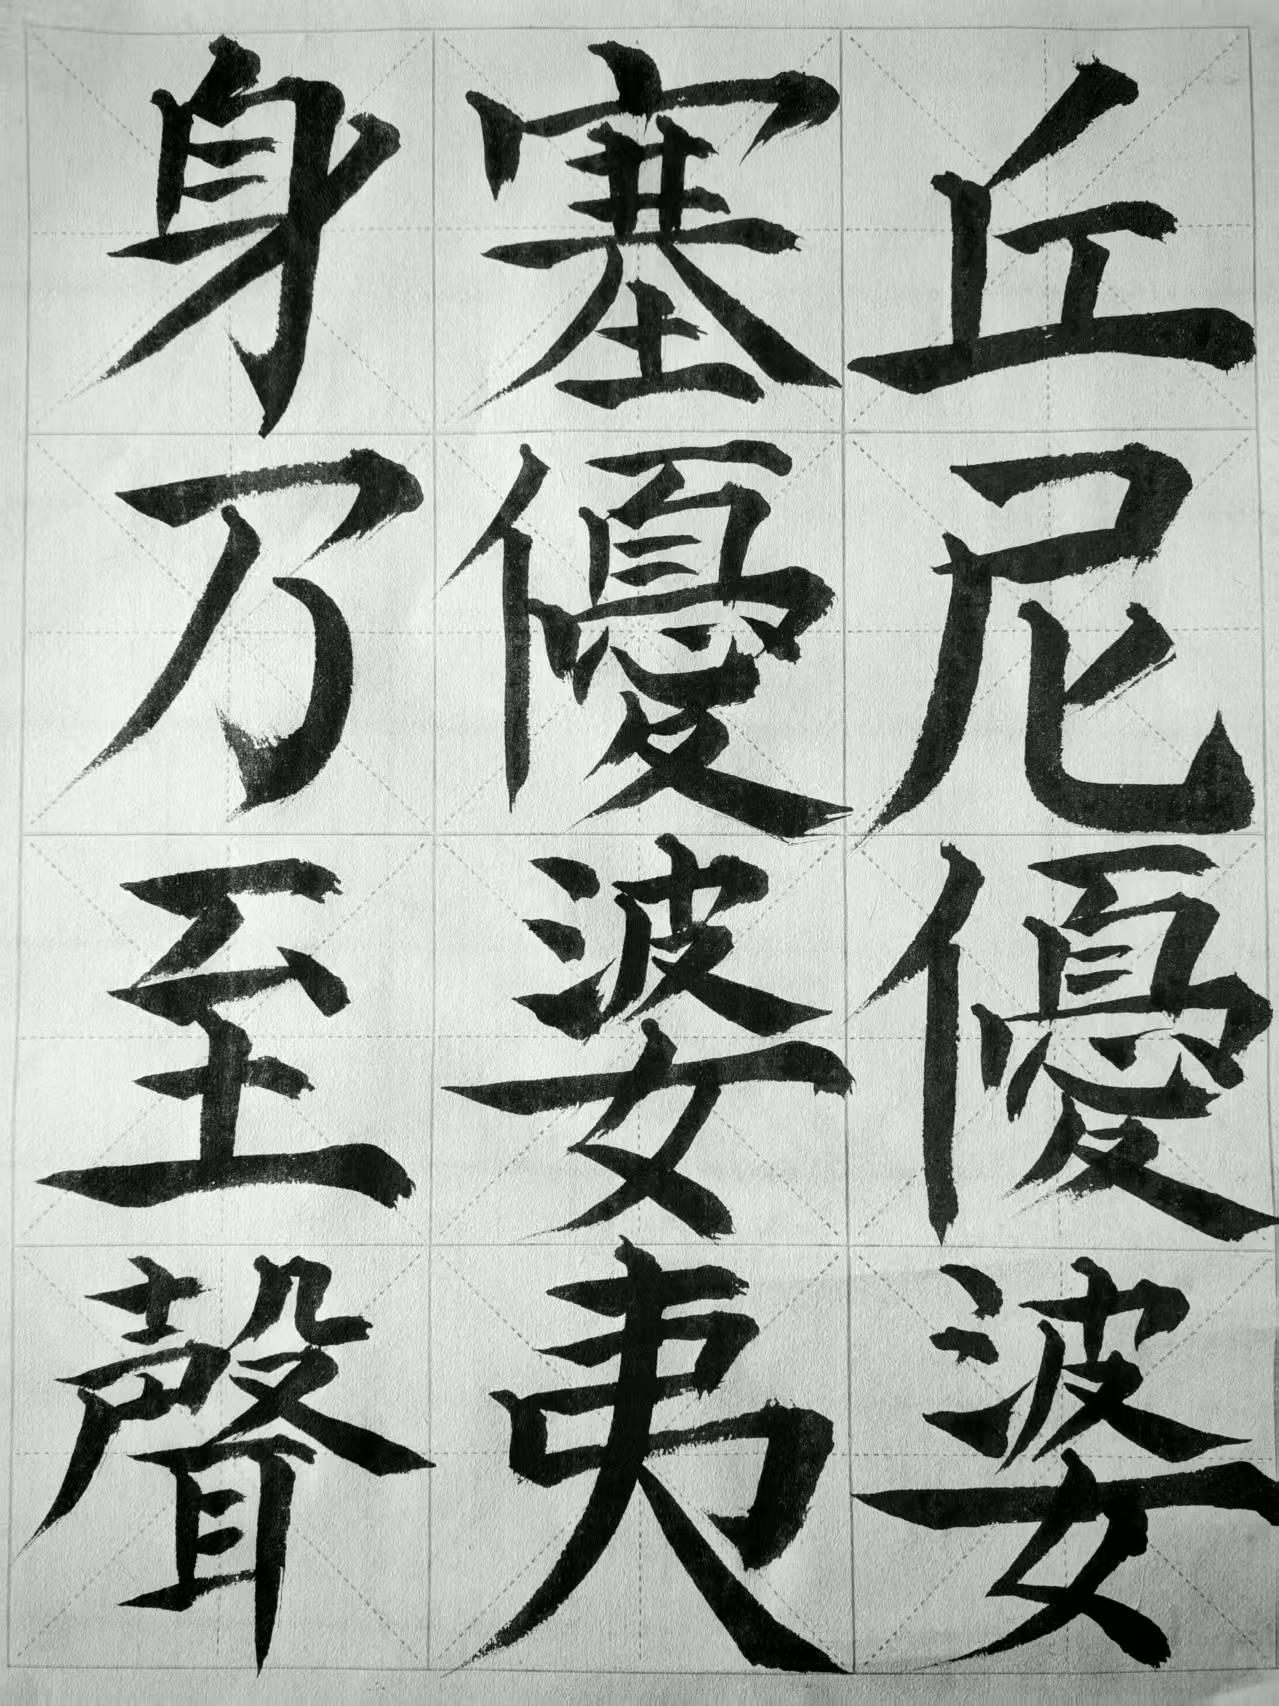 丘尼優婆
塞優婆夷
身乃至聲